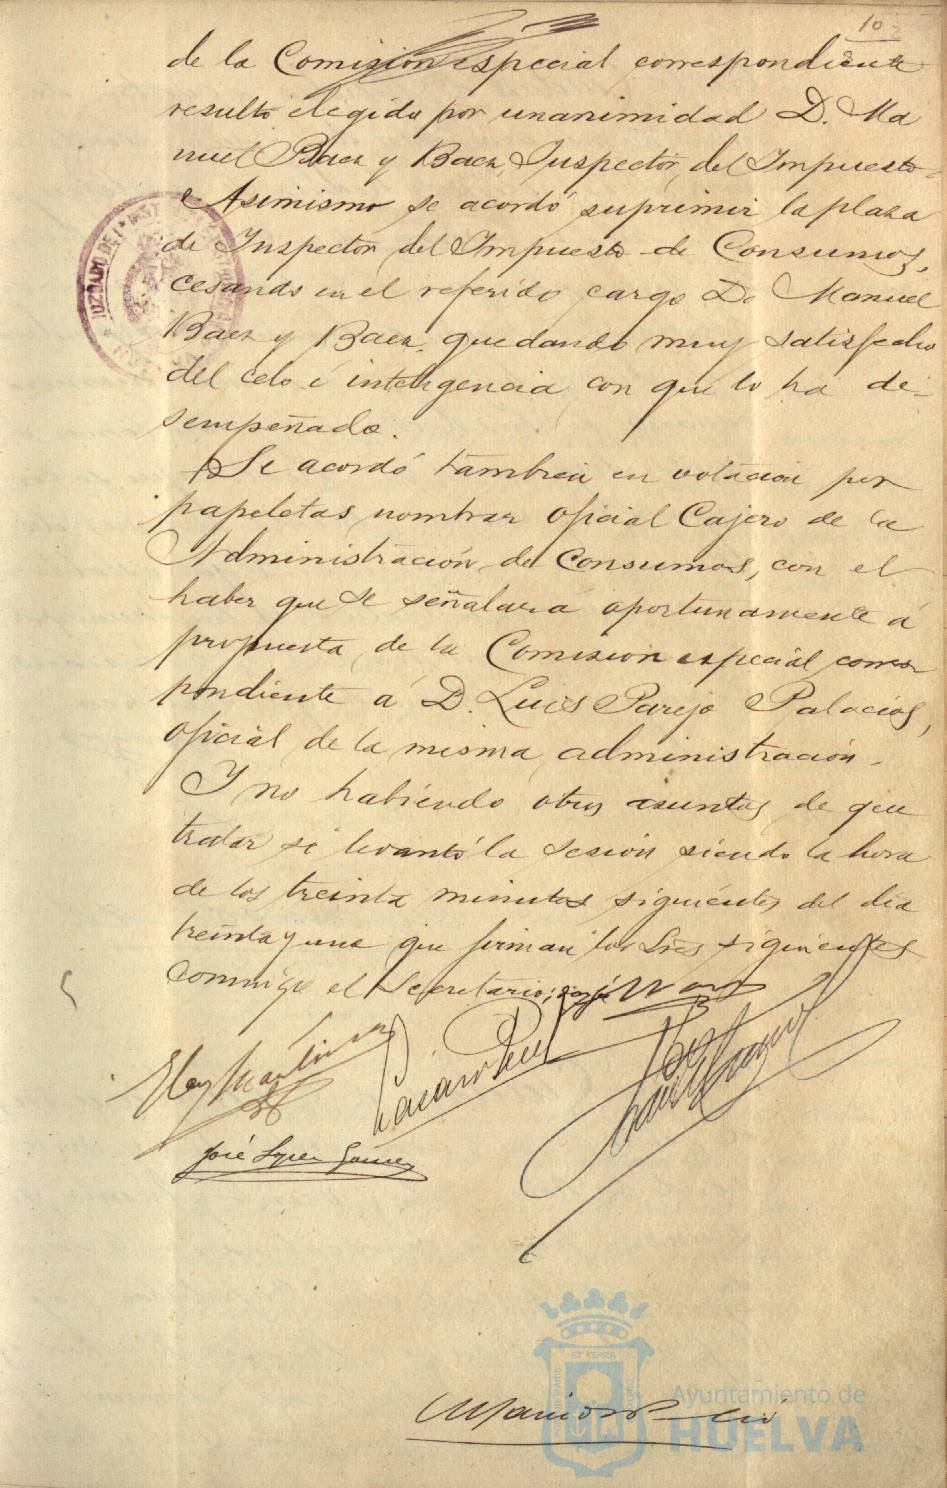 10
de la Comisión especial correspondiente
resultó elegido por unanimidad D. Ma
nuel Baez y Baez, Inspector del Impuesto.
Asimismo se acordó suprimir la plaza
de Inspector del Impuesto de Consumos,
cesando en el referido cargo D. Manuel
Baez y Baez, quedando muy satisfecho
del celo é inteligencia con que lo ha de-
sempeñado.
Se acordó tambien en votación por
papeletas nombrar oficial Cajero de la
Administración de Consumos, con el
haber que se señalará oportunamente á
propuesta de la Comisión especial corres
pondiente á D. Luis Parejo Palacios,
oficial de la misma administración.
Y no habiendo otros asuntos de que
tratar se levantó la sesión siendo la hora
de los treinta minutos siguientes del día
treinta y uno que firman los Sres siguientes
conmigo el Secretario;
José López Gómez
JUZGADO DE 1ª INST
ET TERRA
Ayuntamiento de
HUELVA